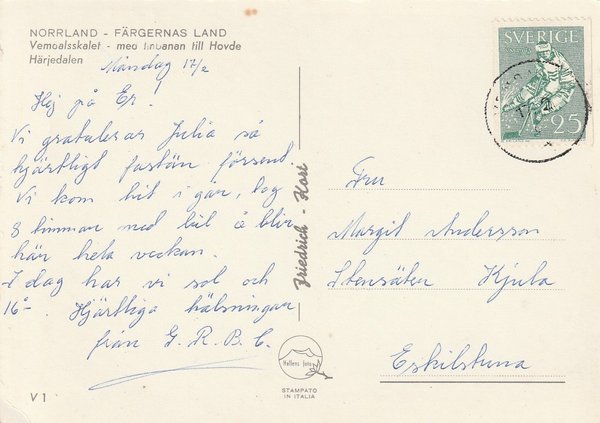 NORRLAND - FÄRGERNAS LAND
Vemdalsskalet - med linbanan till Hovde
Härjedalen
Måndag 17/2
Hej på Er!
Vi gratulerar Julia så
hjärtligt fastän försend.
Vi kom hit i går, tog
8 timmar med bil å blir
här hela veckan.
I dag har vi sol och
16°-. Hjärtliga hälsningar
från G. R. B. C.
V 1
Friedrich - Kort
Hellens foto
STAMPATO
IN ITALIA
SVERIGE
25
Fru
Margit Andersson
Stensäten Kjula
Eskilstuna